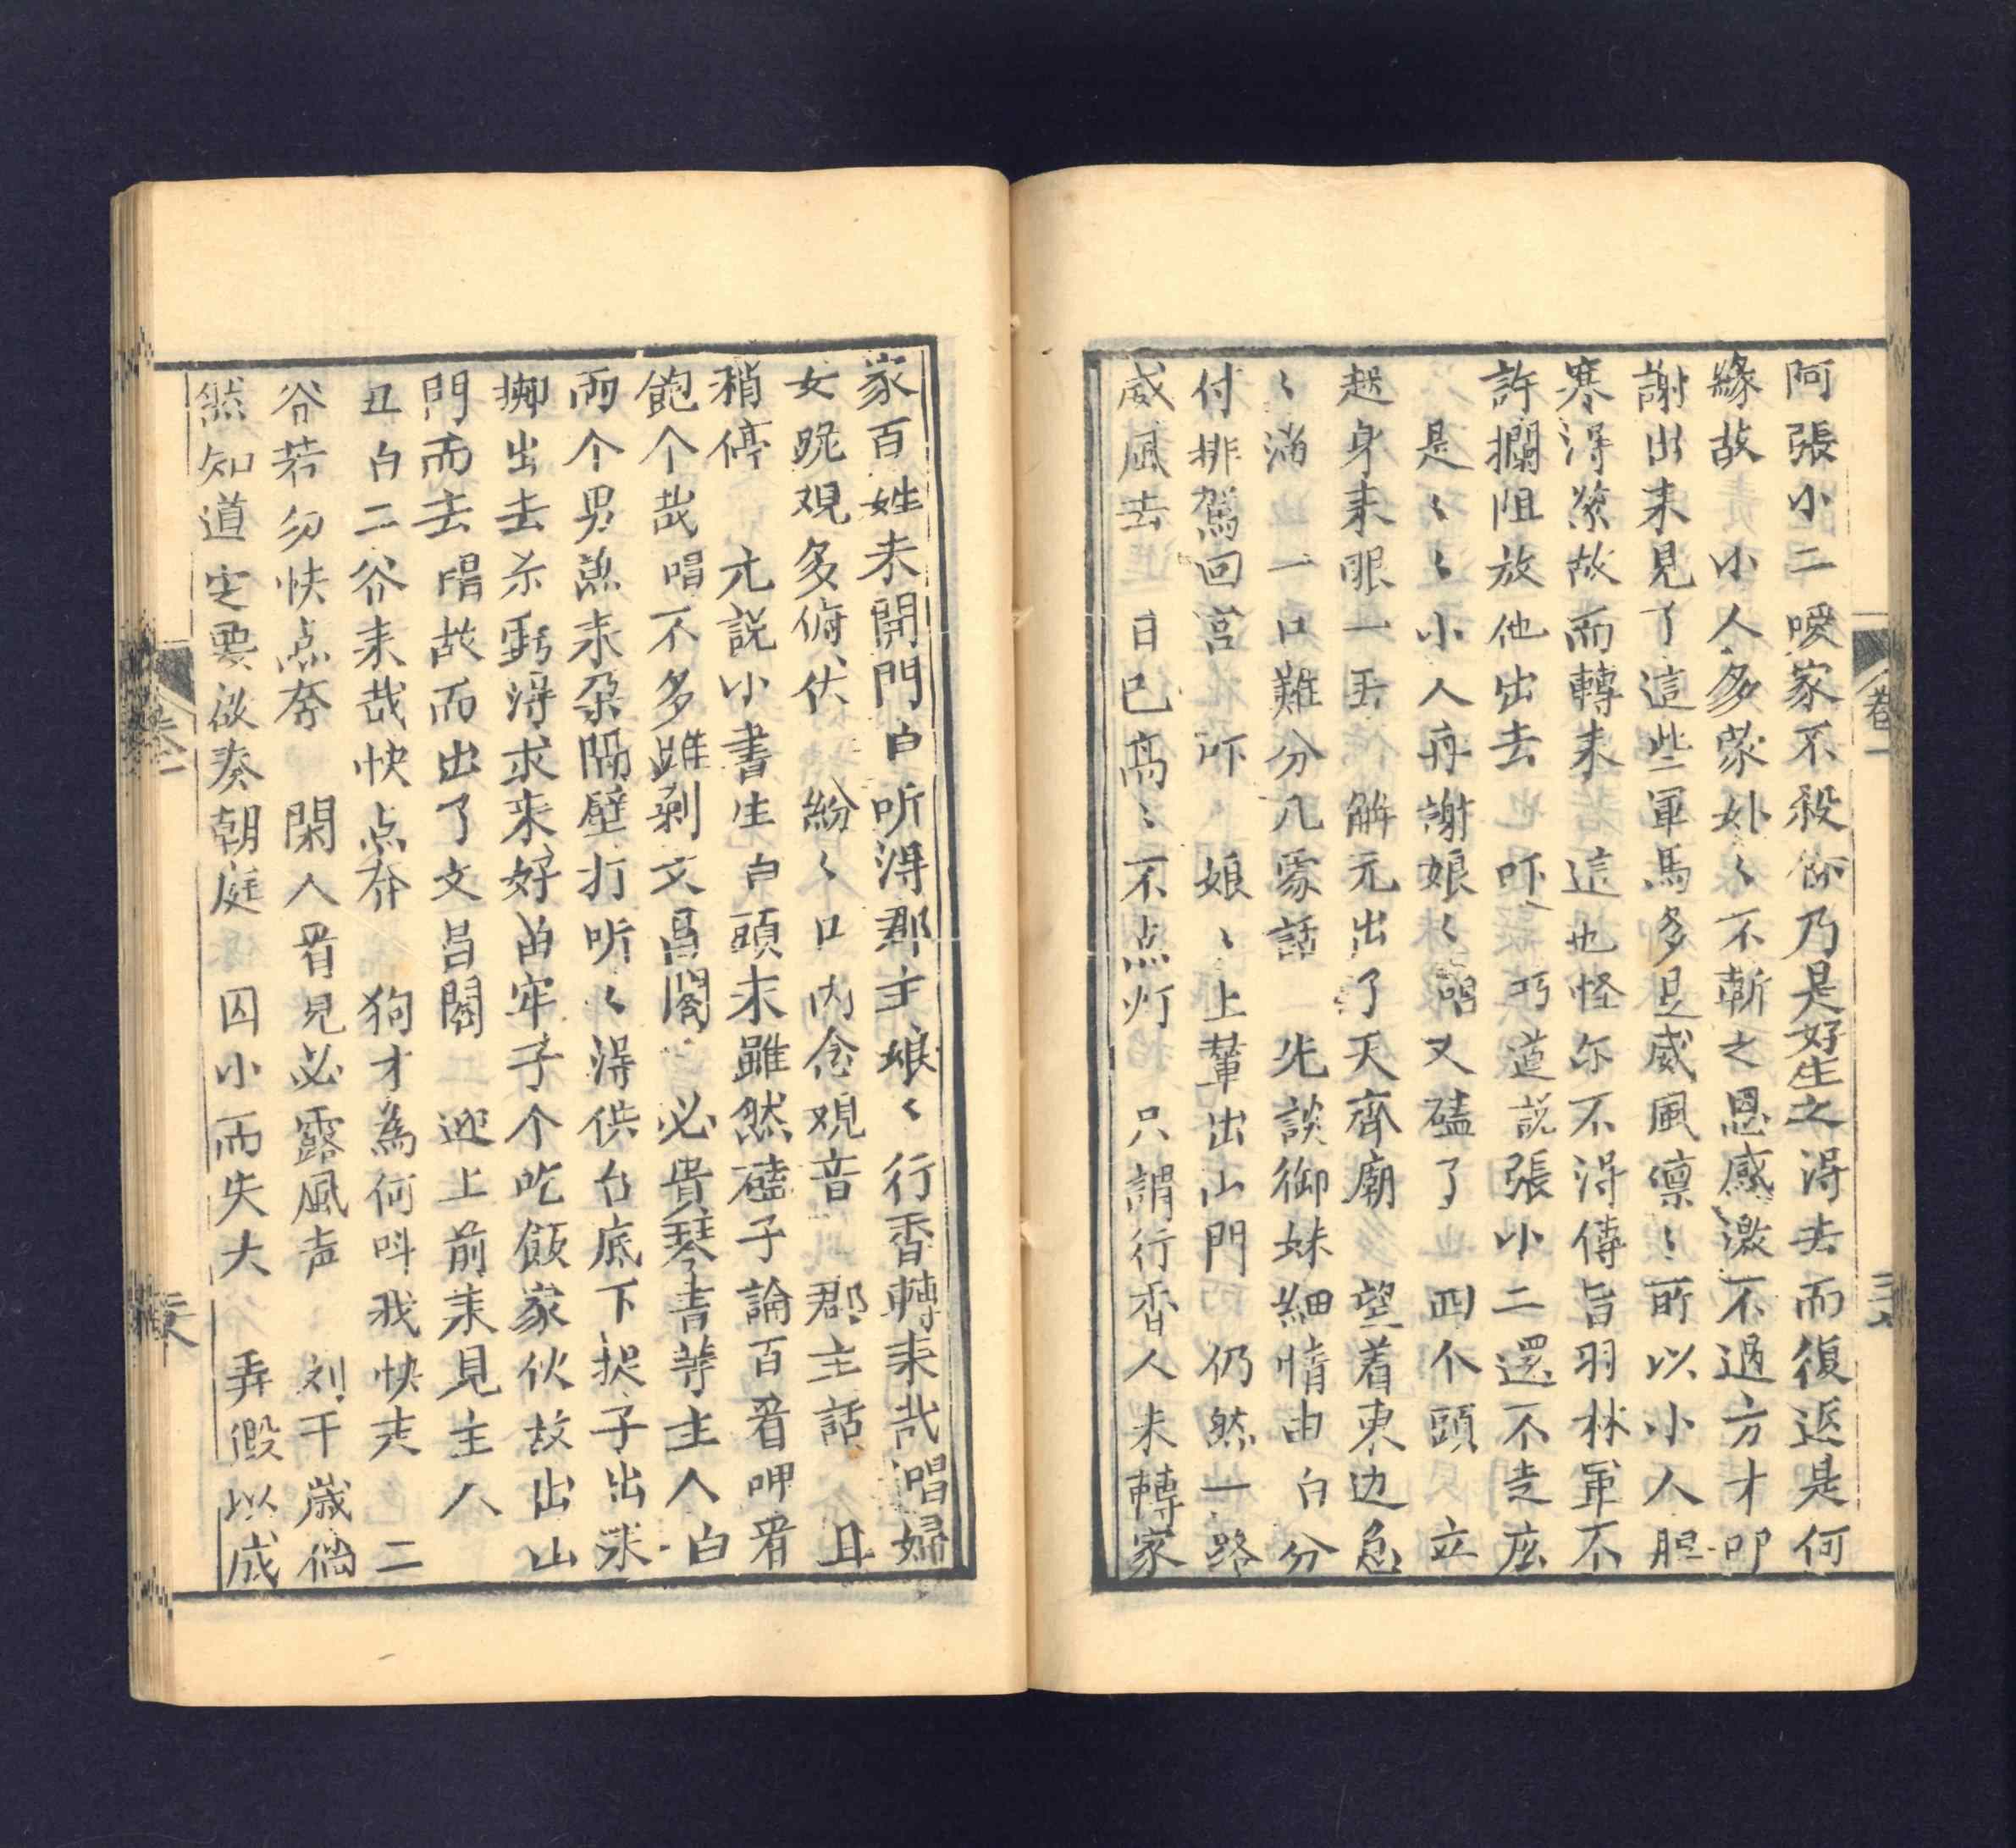 阿張小二噯家不殺伱乃是好生之得去而復返是何
緣故　小人多蒙娘〻不斬之恩感激不過方才叩
謝出耒見了這些軍馬多是威風凛〻所以小人胆
寒得𦂳故而轉耒　這也怪尔不得傳旨羽林軍不
許攔阻放他出去　吓　巧道説張小二還不走庅
是〻〻小人再謝娘〻　唱又磕了　四个頭　立
起身耒眼一丢　解元出了天齊廟　望着東边急
〻滿　一口難分几𠁅話　先談御妹細情由　白分
付排駕回宫　吓　娘〻上輦出山門　仍然一路
威風去　日已髙〻不点灯　只謂行香人未轉家
家百姓未開門　白听得郡主娘〻行香轉耒哉唱婦
女跪𮗚多俯伏　紛〻口内念𮗚音　郡主話　且
稍停　尤説小書生　白頭末雖然磕子論百看呷看
飽个哉　唱不多雖剩文昌閣　必貴琴書等主人　白
两个男㷊耒朶隔壁打听〻得供台底下捉子出来
挷出去杀虧得求来好苗牢子个吃飯家伙故出山
門而去　唱故而出了文昌閣　迎上前耒見主人
丑白二爷耒哉快点夲　狗才為何呌我快走　二
爷若勿快点夲　閑人看見必露風声　刘千歲倘
然知道定要啟奏朝庭　因小而失大　弄假以成
卷一
三六
卷一